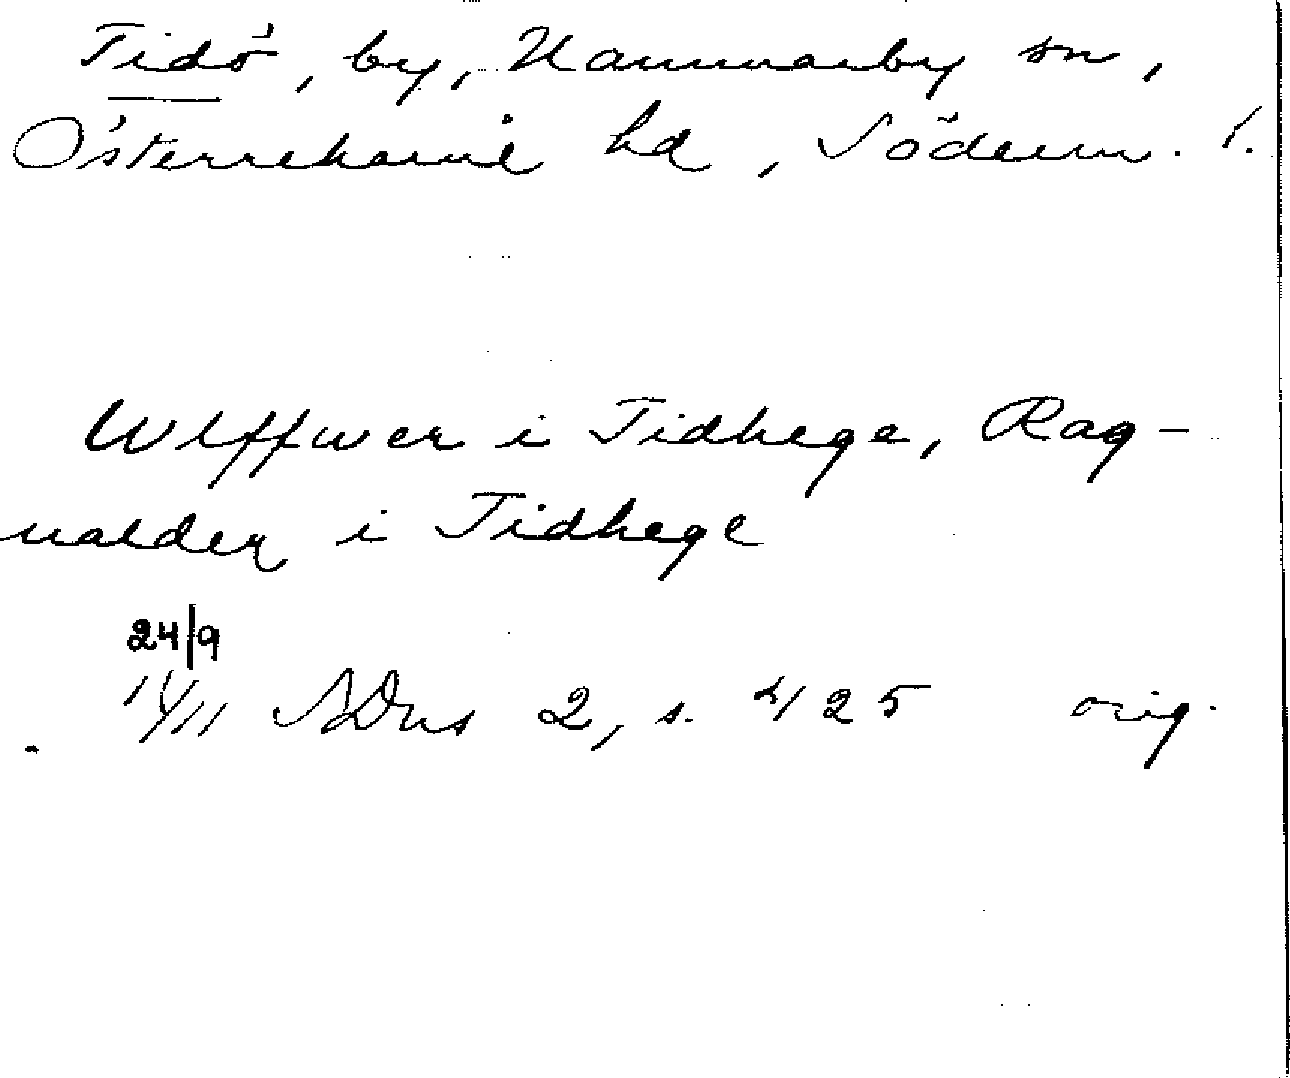 Tidö, by, Hammarby sn,
Österrekarne hd, Söderm. l.
Wlffwer i Tidhege, Rag-
ualder i Tidhege
24/9
1411 SDns 2, s. 425 orig.